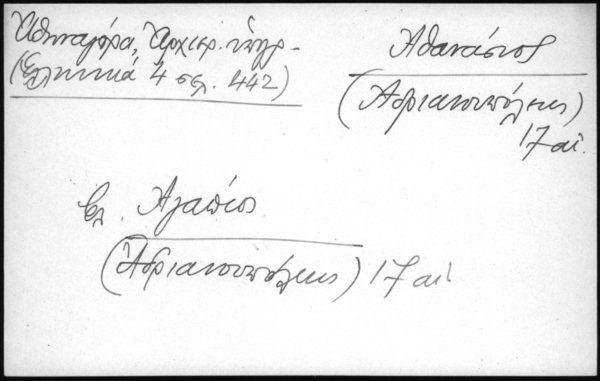 Ἀθηναγόρα, Ἀρχιερ. ὑπογρ.
(Ἑλληνικά 4 σελ. 442)
Ἀθανάσιος
(Ἀδριανουπόλεως)
17 αἰ.
βλ. Ἀγάπιος
(Ἀδριανουπόλεως) 17 αἰ